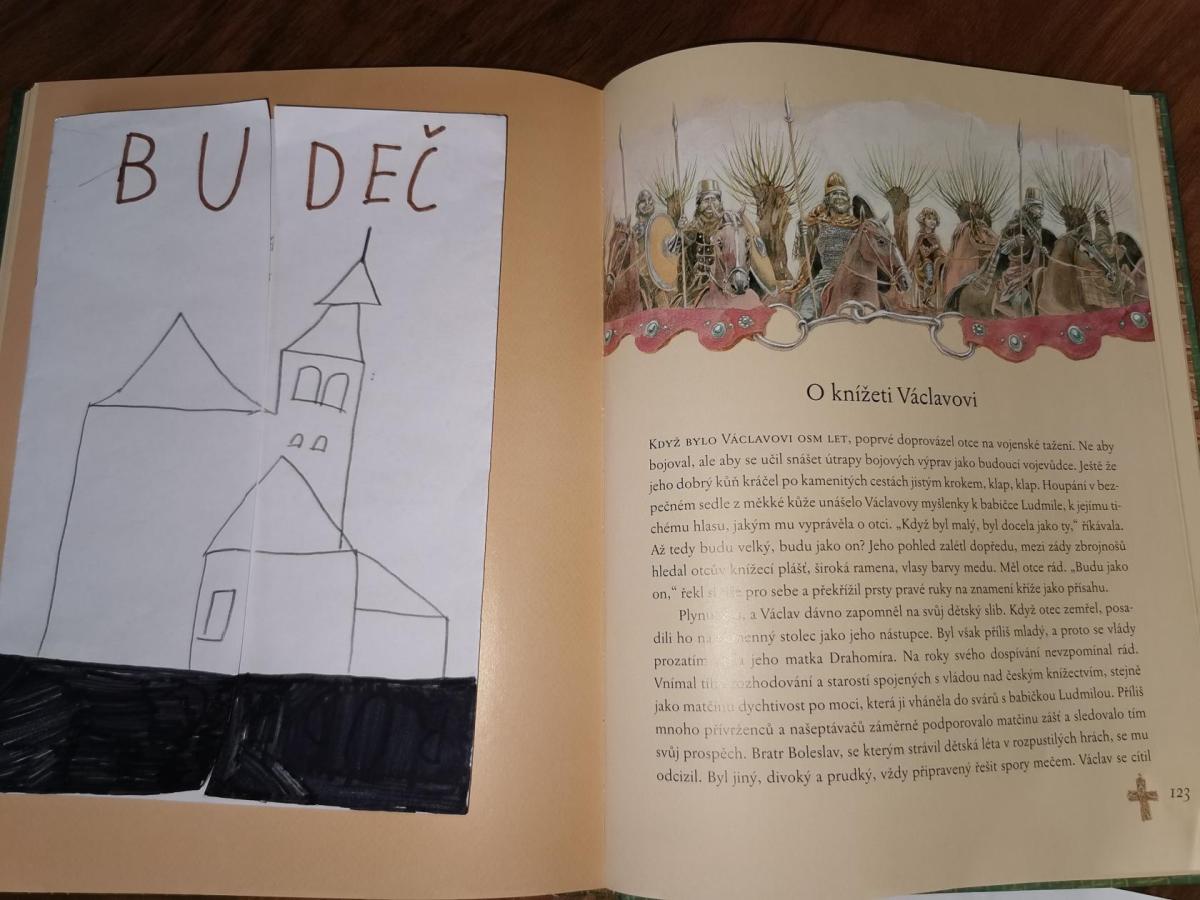 BUDEČ
O knížeti Václavovi
KDYŽ BYLO VÁCLAVOVI OSM LET, poprvé doprovázel otce na vojenské tažení. Ne aby
bojoval, ale aby se učil snášet útrapy bojových výprav jako budoucí vojevůdce. Ještě že
jeho dobrý kůň kráčel po kamenitých cestách jistým krokem, klap, klap. Houpání v bez-
pečném sedle z měkké kůže unášelo Václavovy myšlenky k babičce Ludmile, k jejímu ti-
chému hlasu, jakým mu vyprávěla o otci. „Když byl malý, byl docela jako ty,“ říkávala.
Až tedy budu velký, budu jako on? Jeho pohled zalétl dopředu, mezi zády zbrojnošů
hledal otcův knížecí plášť, široká ramena, vlasy barvy medu. Měl otce rád. „Budu jako
on,“ řekl pro sebe a překřížil prsty pravé ruky na znamení kříže jako přísahu.
a Václav dávno zapomněl na svůj dětský slib. Když otec zemřel, posa-
dili ho na stolec jako jeho nástupce. Byl však příliš mladý, a proto se vlády
prozatím jeho matka Drahomíra. Na roky svého dospívání nevzpomínal rád.
Vnímal rozhodování a starostí spojených s vládou nad českým knížectvím, stejně
jako matčinu dychtivost po moci, která ji vháněla do svárů s babičkou Ludmilou. Příliš
mnoho přívrženců a našeptávačů záměrně podporovalo matčinu zášť a sledovalo tím
svůj prospěch. Bratr Boleslav, se kterým strávil dětská léta v rozpustilých hrách, se mu
odcizil. Byl jiný, divoký a prudký, vždy připravený řešit spory mečem. Václav se cítil
123